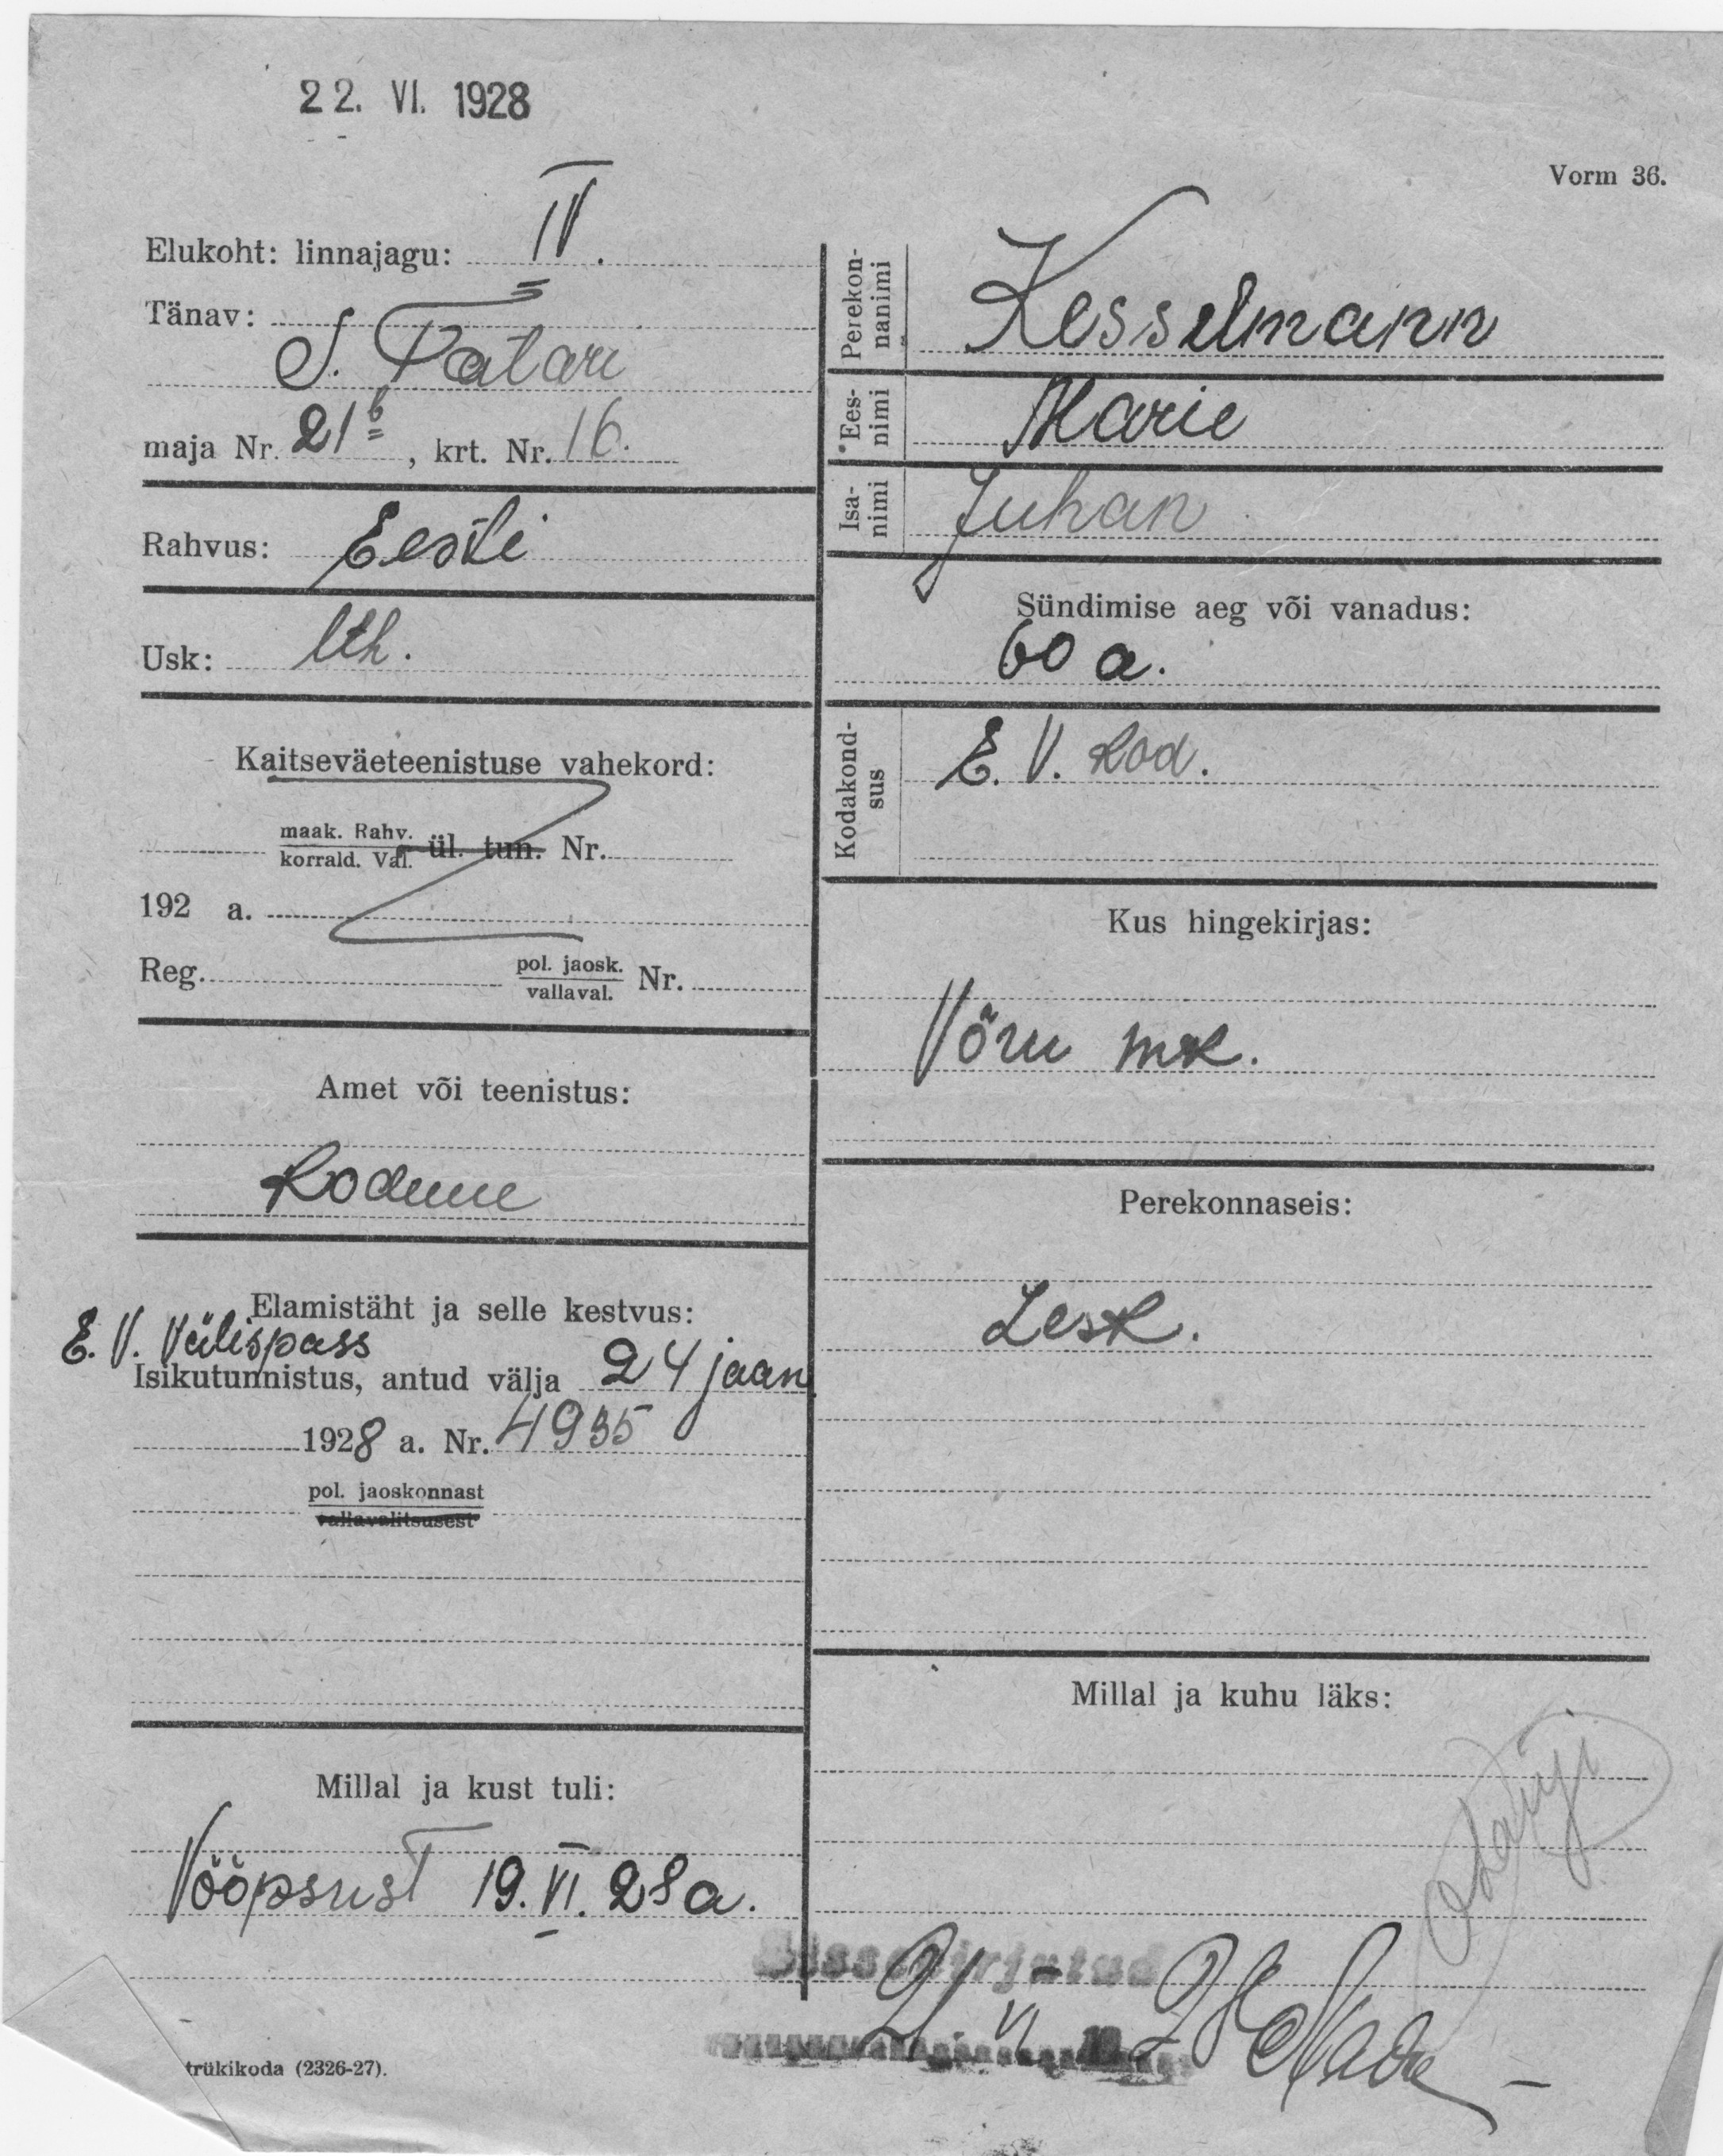 22. VI. 1928
Vorm 36.
Elukoht: linnajagu: IV.
Tänav:
S. Tatari
maja Nr. 21b, krt. Nr. 16.
Rahvus: Eesti
Usk: lth.
Kaitseväeteenistuse vahekord:
maak. Rahv.
korrald. Val. ül. tun. Nr.
192 a.
Reg. pol. jaosk. Nr.
vallaval.
Amet või teenistus:
Kodune
Elamistäht ja selle kestvus:
E. V. Välispass
Isikutunnistus, antud välja 24 jaan
1928 a. Nr. 4935
pol. jaoskonnast
vallavalitsusest
Millal ja kust tuli:
Vööpsust 19. VI. 28 a.
trükikoda (2326-27).
Perekon-
nanimi
Kesselmann
Ees-
nimi
Marie
Isa-
nimi
Juhan
Sündimise aeg või vanadus:
60 a.
Kodakond-
sus
E. V. kod.
Kus hingekirjas:
Võru mk.
Perekonnaseis:
Lesk.
Millal ja kuhu läks:
Sissekirjutud
21 VI 28